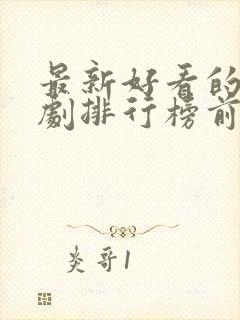 最新好看的
劇排行榜前
炎哥1